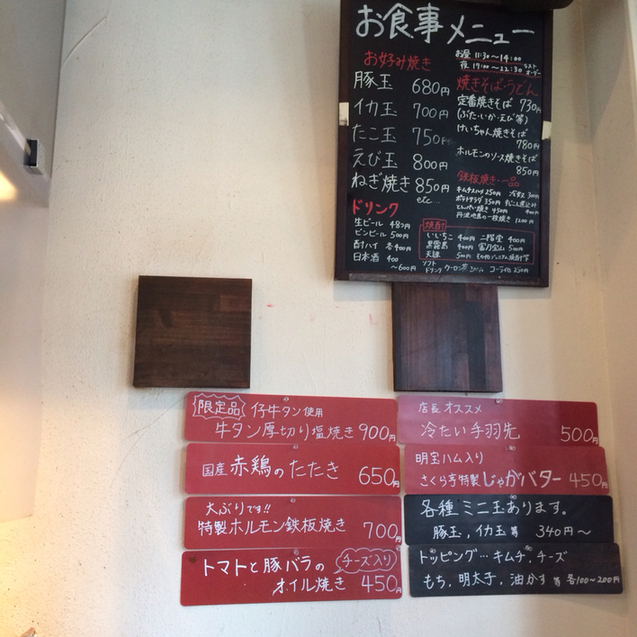 お食事メニュー
お昼 11:30〜14:00
夜 17:00〜22:30 ラストオーダー
お好み焼き
豚玉 680円
イカ玉 700円
たこ玉 750円
えび玉 800円
ねぎ焼き 850円
etc...
焼きそば・うどん
定番焼きそば 730円
(ぶた・いか・えび等)
けいちゃん焼きそば
780円
ホルモンのソース焼きそば
850円
鉄板焼き・一品
キムチ 250円
ポテトサラダ 350円
とんぺい焼き 450円
ドリンク
生ビール 480円
ビンビール 500円
酎ハイ 各400円
日本酒 400
〜600円
焼酎
いいちこ 400円 二階堂 400円
黒霧島 400円
天誅 500円
ソフト
ドリンク ウーロン茶 コーラ他 250円
限定品 仔牛タン使用
牛タン厚切り塩焼き 900円
国産赤鶏のたたき 650円
大ぶりです!!
特製ホルモン鉄板焼き 700円
トマトと豚バラの チーズ入り
オイル焼き 450円
店長オススメ
冷たい手羽先 500円
明宝ハム入り
さくら亭特製じゃがバター 450円
各種ミニ玉あります。
豚玉,イカ玉等 340円〜
トッピング…キムチ,チーズ
もち,明太子,油かす 等 各100〜200円